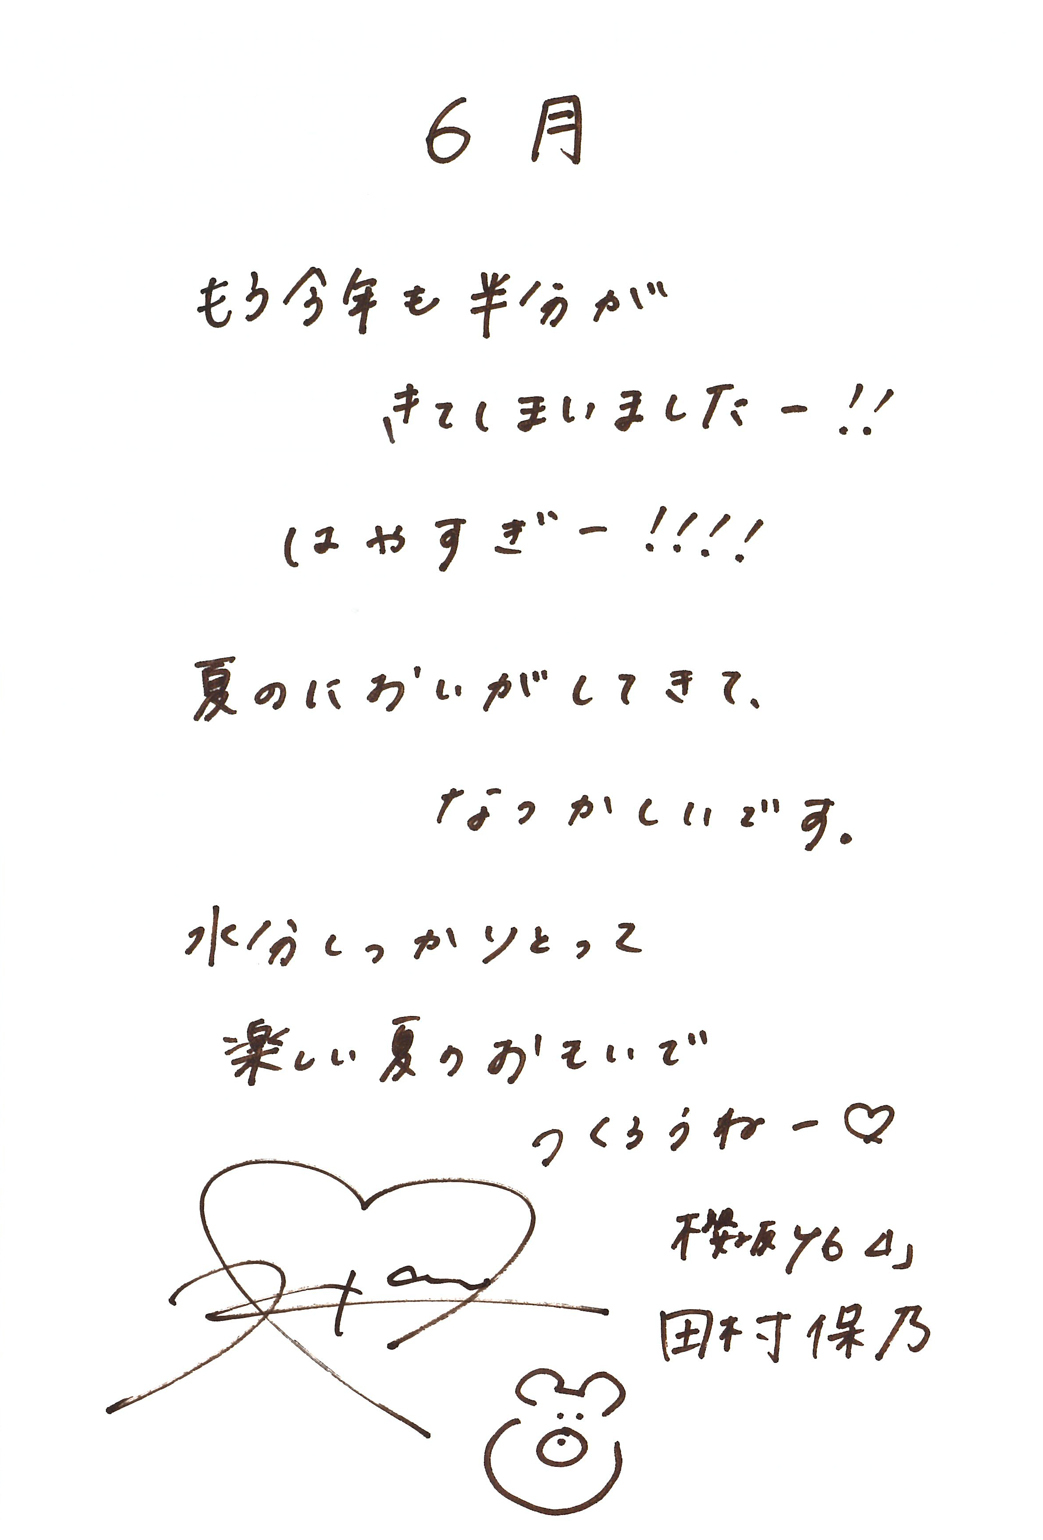 6月
もう今年も半分が
きてしまいましたー!!
はやすぎー!!!!
夏のにおいがしてきて、
なつかしいです。
水分しっかりとって
楽しい夏のおもいで
つくろうねー♡
櫻坂46
田村保乃